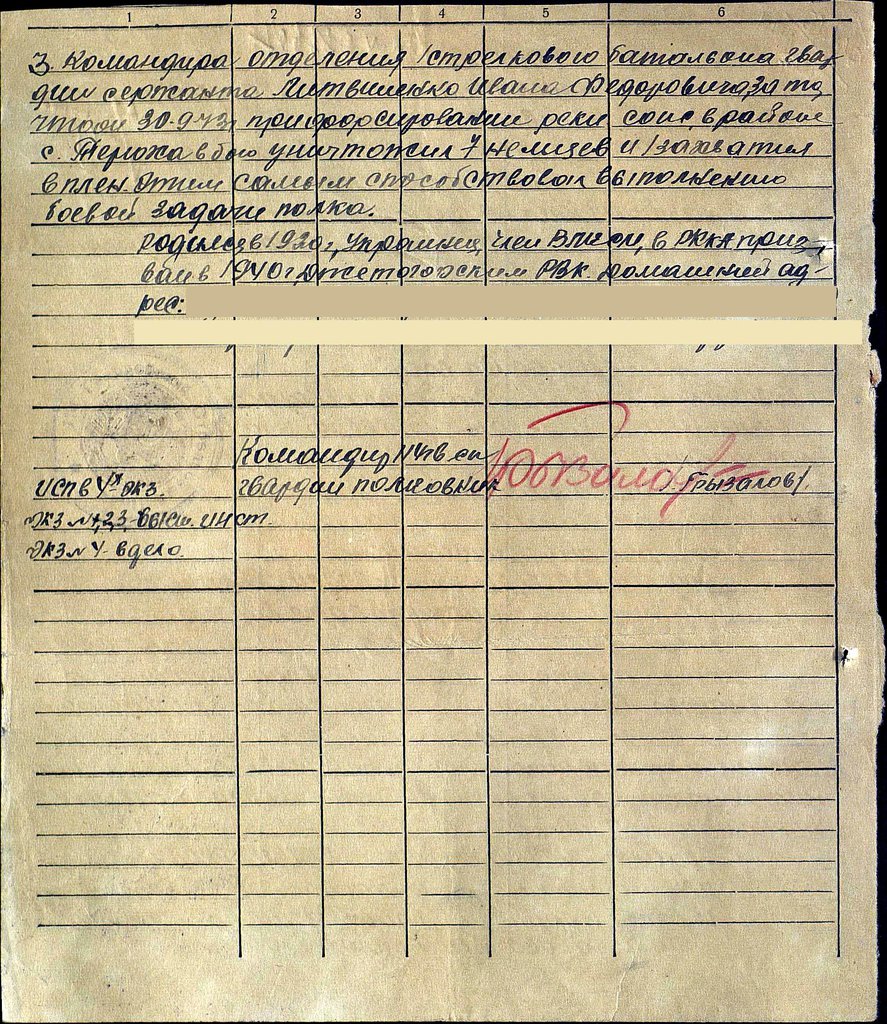 1 2 3 4 5 6
3. Командира отделения 1 стрелкового батальона гвар-
дии сержанта Литвиненко Ивана Федоровича за то,
что он 30.9.43г при форсировании реки Сож в районе
с. Тероха в бою уничтожил 7 немцев и 1 захватил
в плен. Этим самым способствовал выполнению
боевой задачи полка.
Родился в 1920г, Украинец, член ВЛКСМ, в РККА приз-
ван в 1940г РВК. Домашний ад-
рес:
Командир гв сп
гвардии полковник /Грызалов/.
исп в 4х экз.
экз №1,2,3 - высш. инст.
экз №4 - в дело.